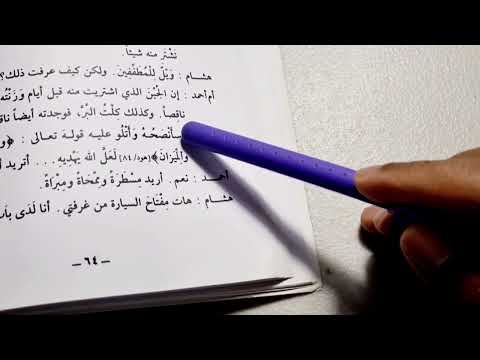 نَشْتَرِ منه شيئاً.
هشام : وَيْلٌ لِلْمُطَفِّفِينَ. ولكن كيف عرفت ذلك؟
أم أحمد : إن الجُبْنَ الذي اشتريت منه قبل أيام وَزَنْتُه
ناقصاً. وكذلك كِلْتُ البُرَّ، فوجدته أيضاً
سأَنْصَحُهُ وَأَتْلُو عليه قوله تعالى :
وَالْمِيزَانَ﴾ [هود/٨٤] لَعَلَّ الله يَهْدِيهِ ... أتريد
أحمد : نعم. أريد مِسْطَرَةً وَمِمْحَاةً وَمِبْرَاةً.
هشام : هات مِفْتَاحَ السيارة من غرفتي. أنا لَدَى
– ٦٤ –